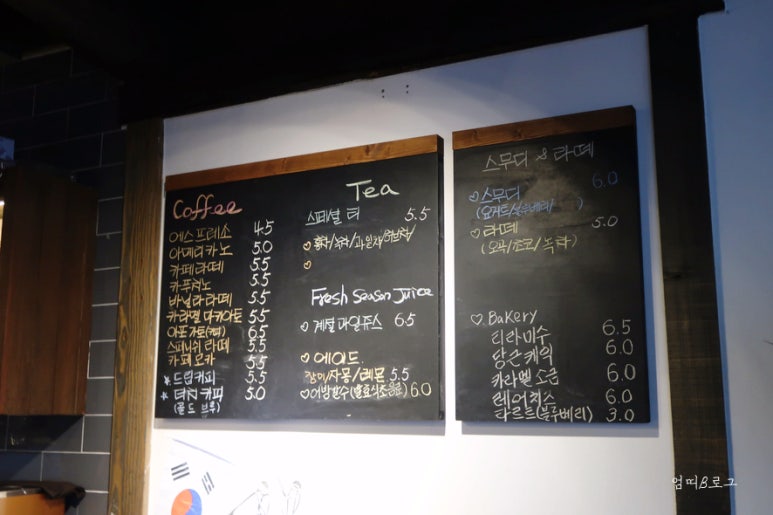 Coffee
에스프레소 4.5
아메리카노 5.0
카페라떼 5.5
카푸치노 5.5
바닐라라떼 5.5
카라멜 마키아토 5.5
아포가토(커피) 6.5
스페니쉬 라떼 5.5
카페모카 5.5
드립커피 5.5
더치커피 5.0
(콜드 브루)
Tea
스페셜 티 5.5
홍차/녹차/과일차/
Fresh Season Juice
계절과일쥬스 6.5
에이드
자몽/레몬 5.5
6.0
스무디 & 라떼
스무디 6.0
(요거트/블루베리/ )
라떼 5.0
(오곡/초코/녹차)
Bakery
티라미수 6.5
당근케익 6.0
카라멜소금 6.0
레어치즈 6.0
타르트(블루베리) 3.0
엄띠B로그